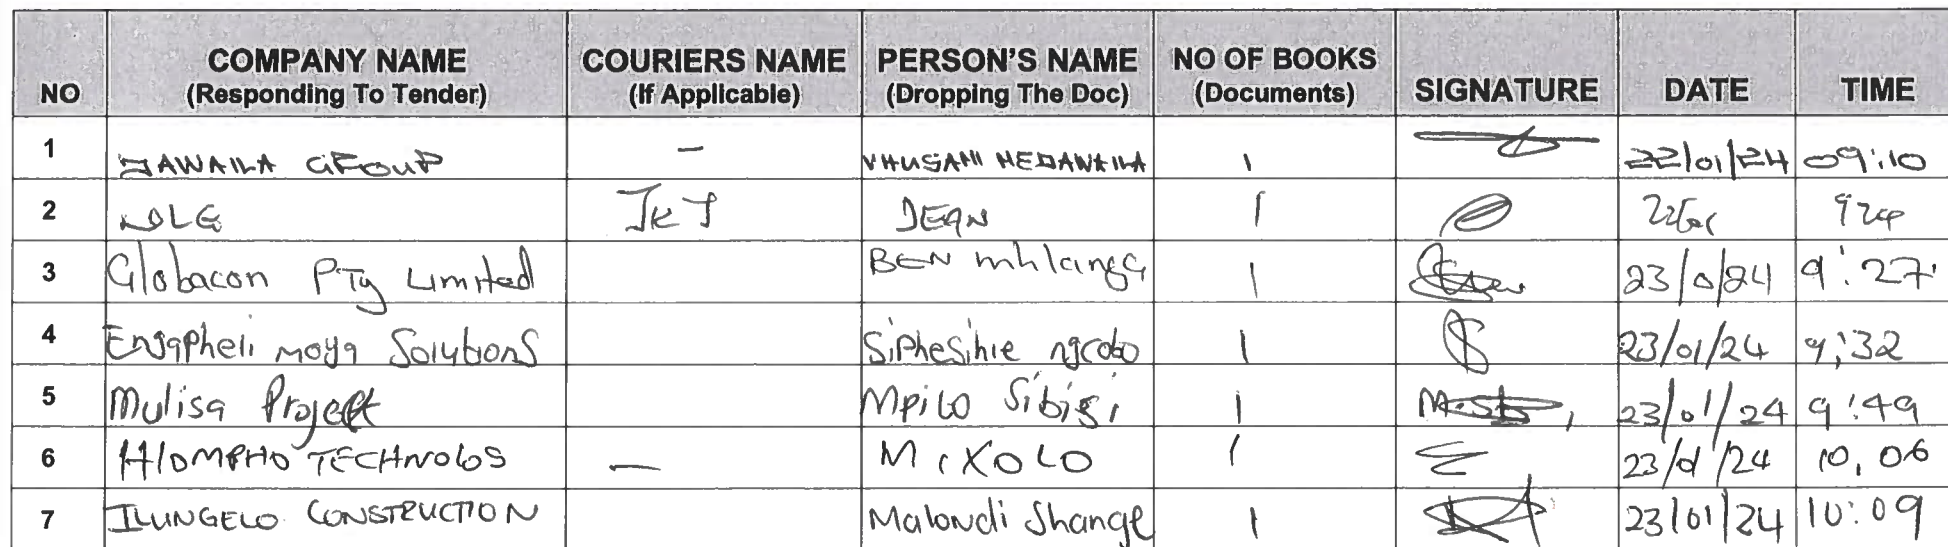 NO COMPANY NAME (Responding To Tender) COURIERS NAME (If Applicable) PERSON'S NAME (Dropping The Doc) NO OF BOOKS (Documents) SIGNATURE DATE TIME
1 DAWAILA GROUP - VHUSANI NEDAWAILA 1 22/01/24 09:10
2 JKJ JEAN 1
3 Globacon PTy Limited BEN mhlanga 1 23/0/24 9:27
4 Moya Solutions Siphesihle ngcobo 1 23/01/24 9:32
5 Mulisa Project Mpilo Sibisi 1 23/01/24 9:49
6 HlOMPHO TECHNOLOS — MIXOLO 1 23/01/24 10,06
7 ILUNGELO CONSTRUCTION Malondi Shange 1 23/01/24 10:09